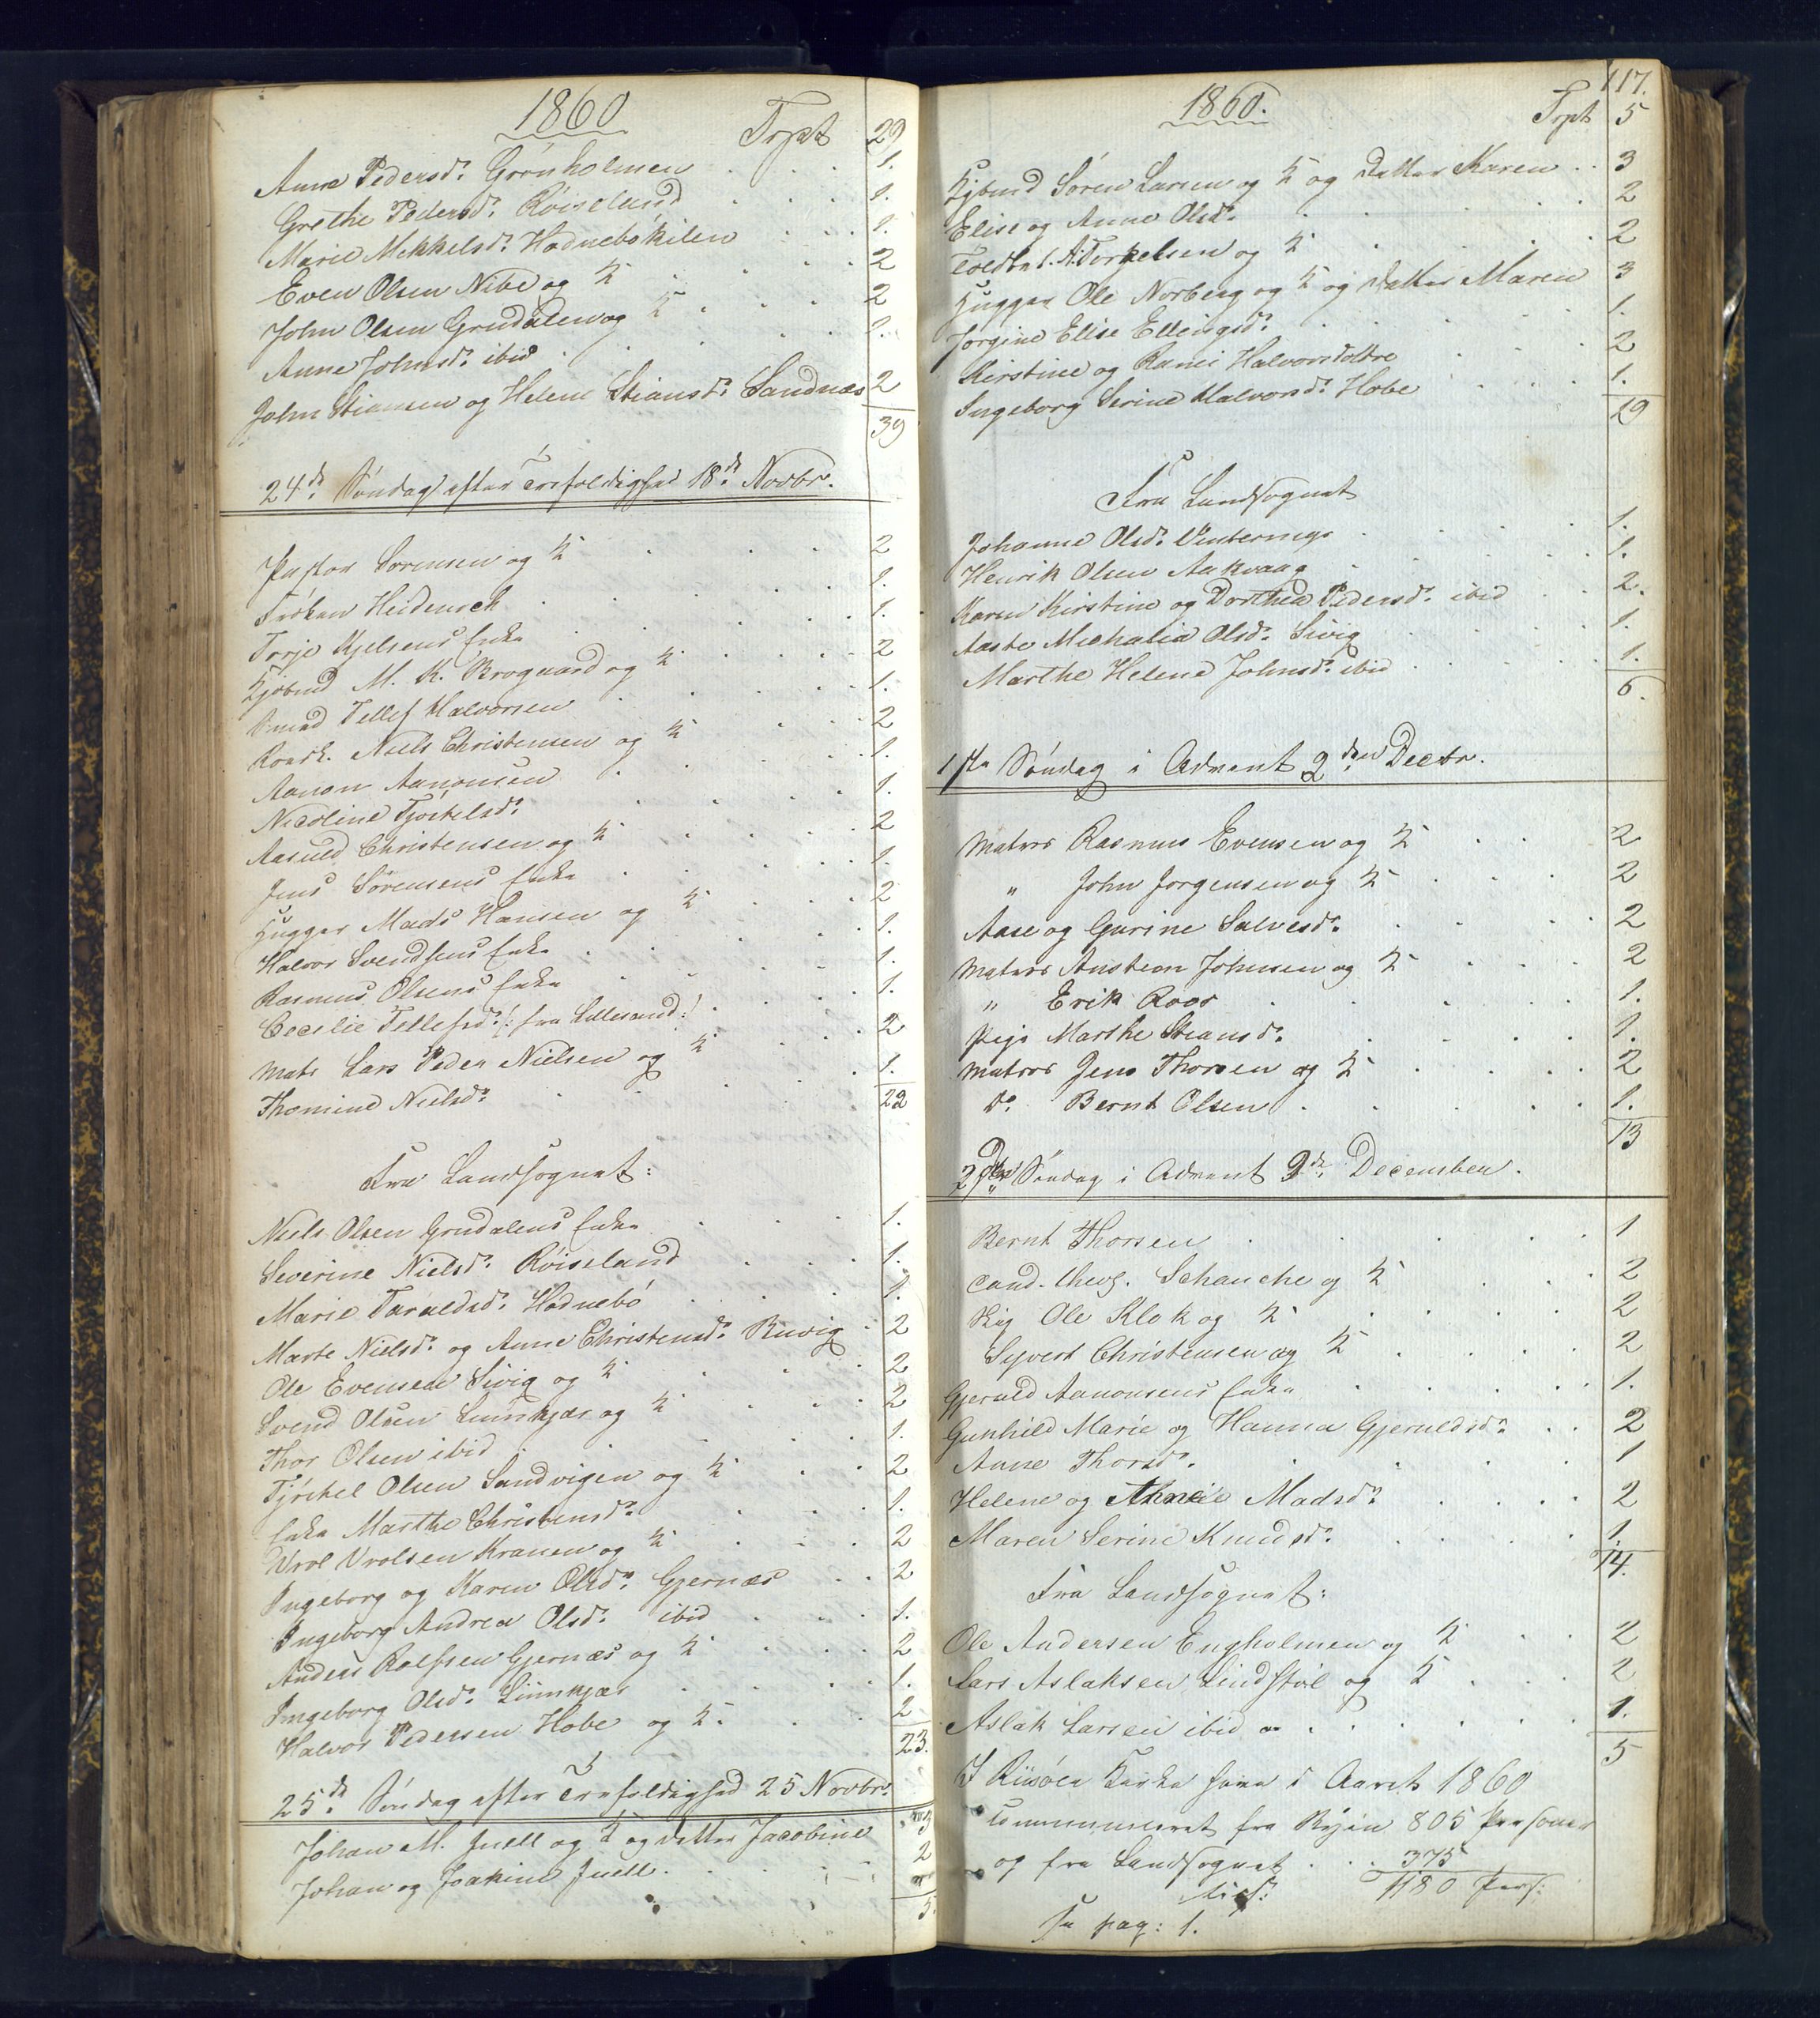 1860
Trpt 29
Anne Pedersd: Grönholmen 1.
Grethe Pedersd: Röiseland 1.
Marie Mikkelsd: Hödnebökilen 1.
Even Olsen Nibe og K 2
John Olsen Grudalen og K 2
Anne Johnsd: ibid 1.
John Stiansen og Helene Stiansd: Sandnæs 2
39
24de Söndag efter Trefoldighed 18de Novbr.
Pastor Sörensen og K 2
Fröken Heidenreich 1.
Torje Kjelsens Enke 1.
Kjöbmd M. K. Brogaard og K 2
Smed Tellef Halvorsen 1.
Niels Christensen og K 2
Aanon Aanonsen 1.
Nicoline Tjöstelsd: 1.
Aasuld Christensen og K 2
Jens Sörensens Enke 1.
Hugger Mads Hansen og K 2
Halvor Svendsens Enke 1.
Rasmus Olsens Enke 1.
Cecelie Tellefsd: /: fra Lillesand :/ 1.
Matr Lars Peder Nielsen og K 2
Thomine Nielsd: 1.
22
Fra Landsognet:
Niels Olsen Grudalens Enke 1.
Severine Nielsd: Röiseland 1.
Marie Taraldsd: Hödnebö 1.
Marte Nielsd: og Anne Christensd: Buvig 2
Ole Evensen Sivig og K 2
Svend Olsen Lunskjær og K 2
Thor Olsen ibid 1.
Tjöstel Olsen Sandvigen og K 2
Enke Marthe Christensd: 1.
Wrol Vrolsen Kranen og K 2
Ingeborg og Karen Olsd: Gjernæs 2
Ingeborg Andrea Olsd: ibid 1.
Anders Rolfsen Gjernæs og K 2
Ingeborg Olsd: Lunskjær 1.
Halvor Pedersen Hobe og K. 2
23.
25de Söndag efter Trefoldighed 25 Novbr.
Johan M. Juell og K og datter Jacobine 3
Johan og Joakine Juell 2
5.
117.
1860.
Trpt 5
Kjöbmd Sören Larsen og K og Datter Karen 3
Elise og Anne Olsd: 2
Toldbet. A: Torkelsen og K 2
Hugger Ole Norberg og K og Datter Maren 3
Jörgine Elise Ellingsd: 1.
Kirstine og Halvorsdöttre 2
Ingeborg Serine Halvorsd: Hobe 1.
19
Fra Landsognet
Johanne Olsd: 1.
Henrik Olsen Aakvaag 1.
Karen Kirstine og Dorthea Pedersd: ibid 2.
Aaste Michalia Olsd: Sivig 1.
Marthe Helene Johnsd: ibid 1.
6.
1ste Söndag i Advent 2den Decbr.
Matros Rasmus Evensen og K 2
" John Jörgensen og K 2
Aase og Gurine Salvesd: 2
Matros Ansteen Johnsen og K 2
" Erik Roos 1.
Pige Marthe Stiansd: 1.
Matros Jens Thorsen og K 2
Do. Bernt Olsen 1.
13
2den Söndag i Advent 9de December.
Bernt Thorsen 1
cand. theol. Schanche og K 2
Ole Klok og K 2
Syvert Christensen og K 2
Gjeruld Aanonsens Enke 1.
Gunhild Marie og Hanna Gjeruldsd: 2
Anne Thorsd: 1
Helene og Madsd: 2
Maren Serine Knudsd: 1.
14.
Fra Landsognet:
Ole Andersen Engholmen og K 2
Lars Aslaksen Lindstöl og K 2
Aslak Larsen ibid 1.
5
I Riisöer Kirke have i Aaret 1860
communiceret fra Byen 805 Personer
og fra Landsognet 375
1180 Pers:
See pag: 1.